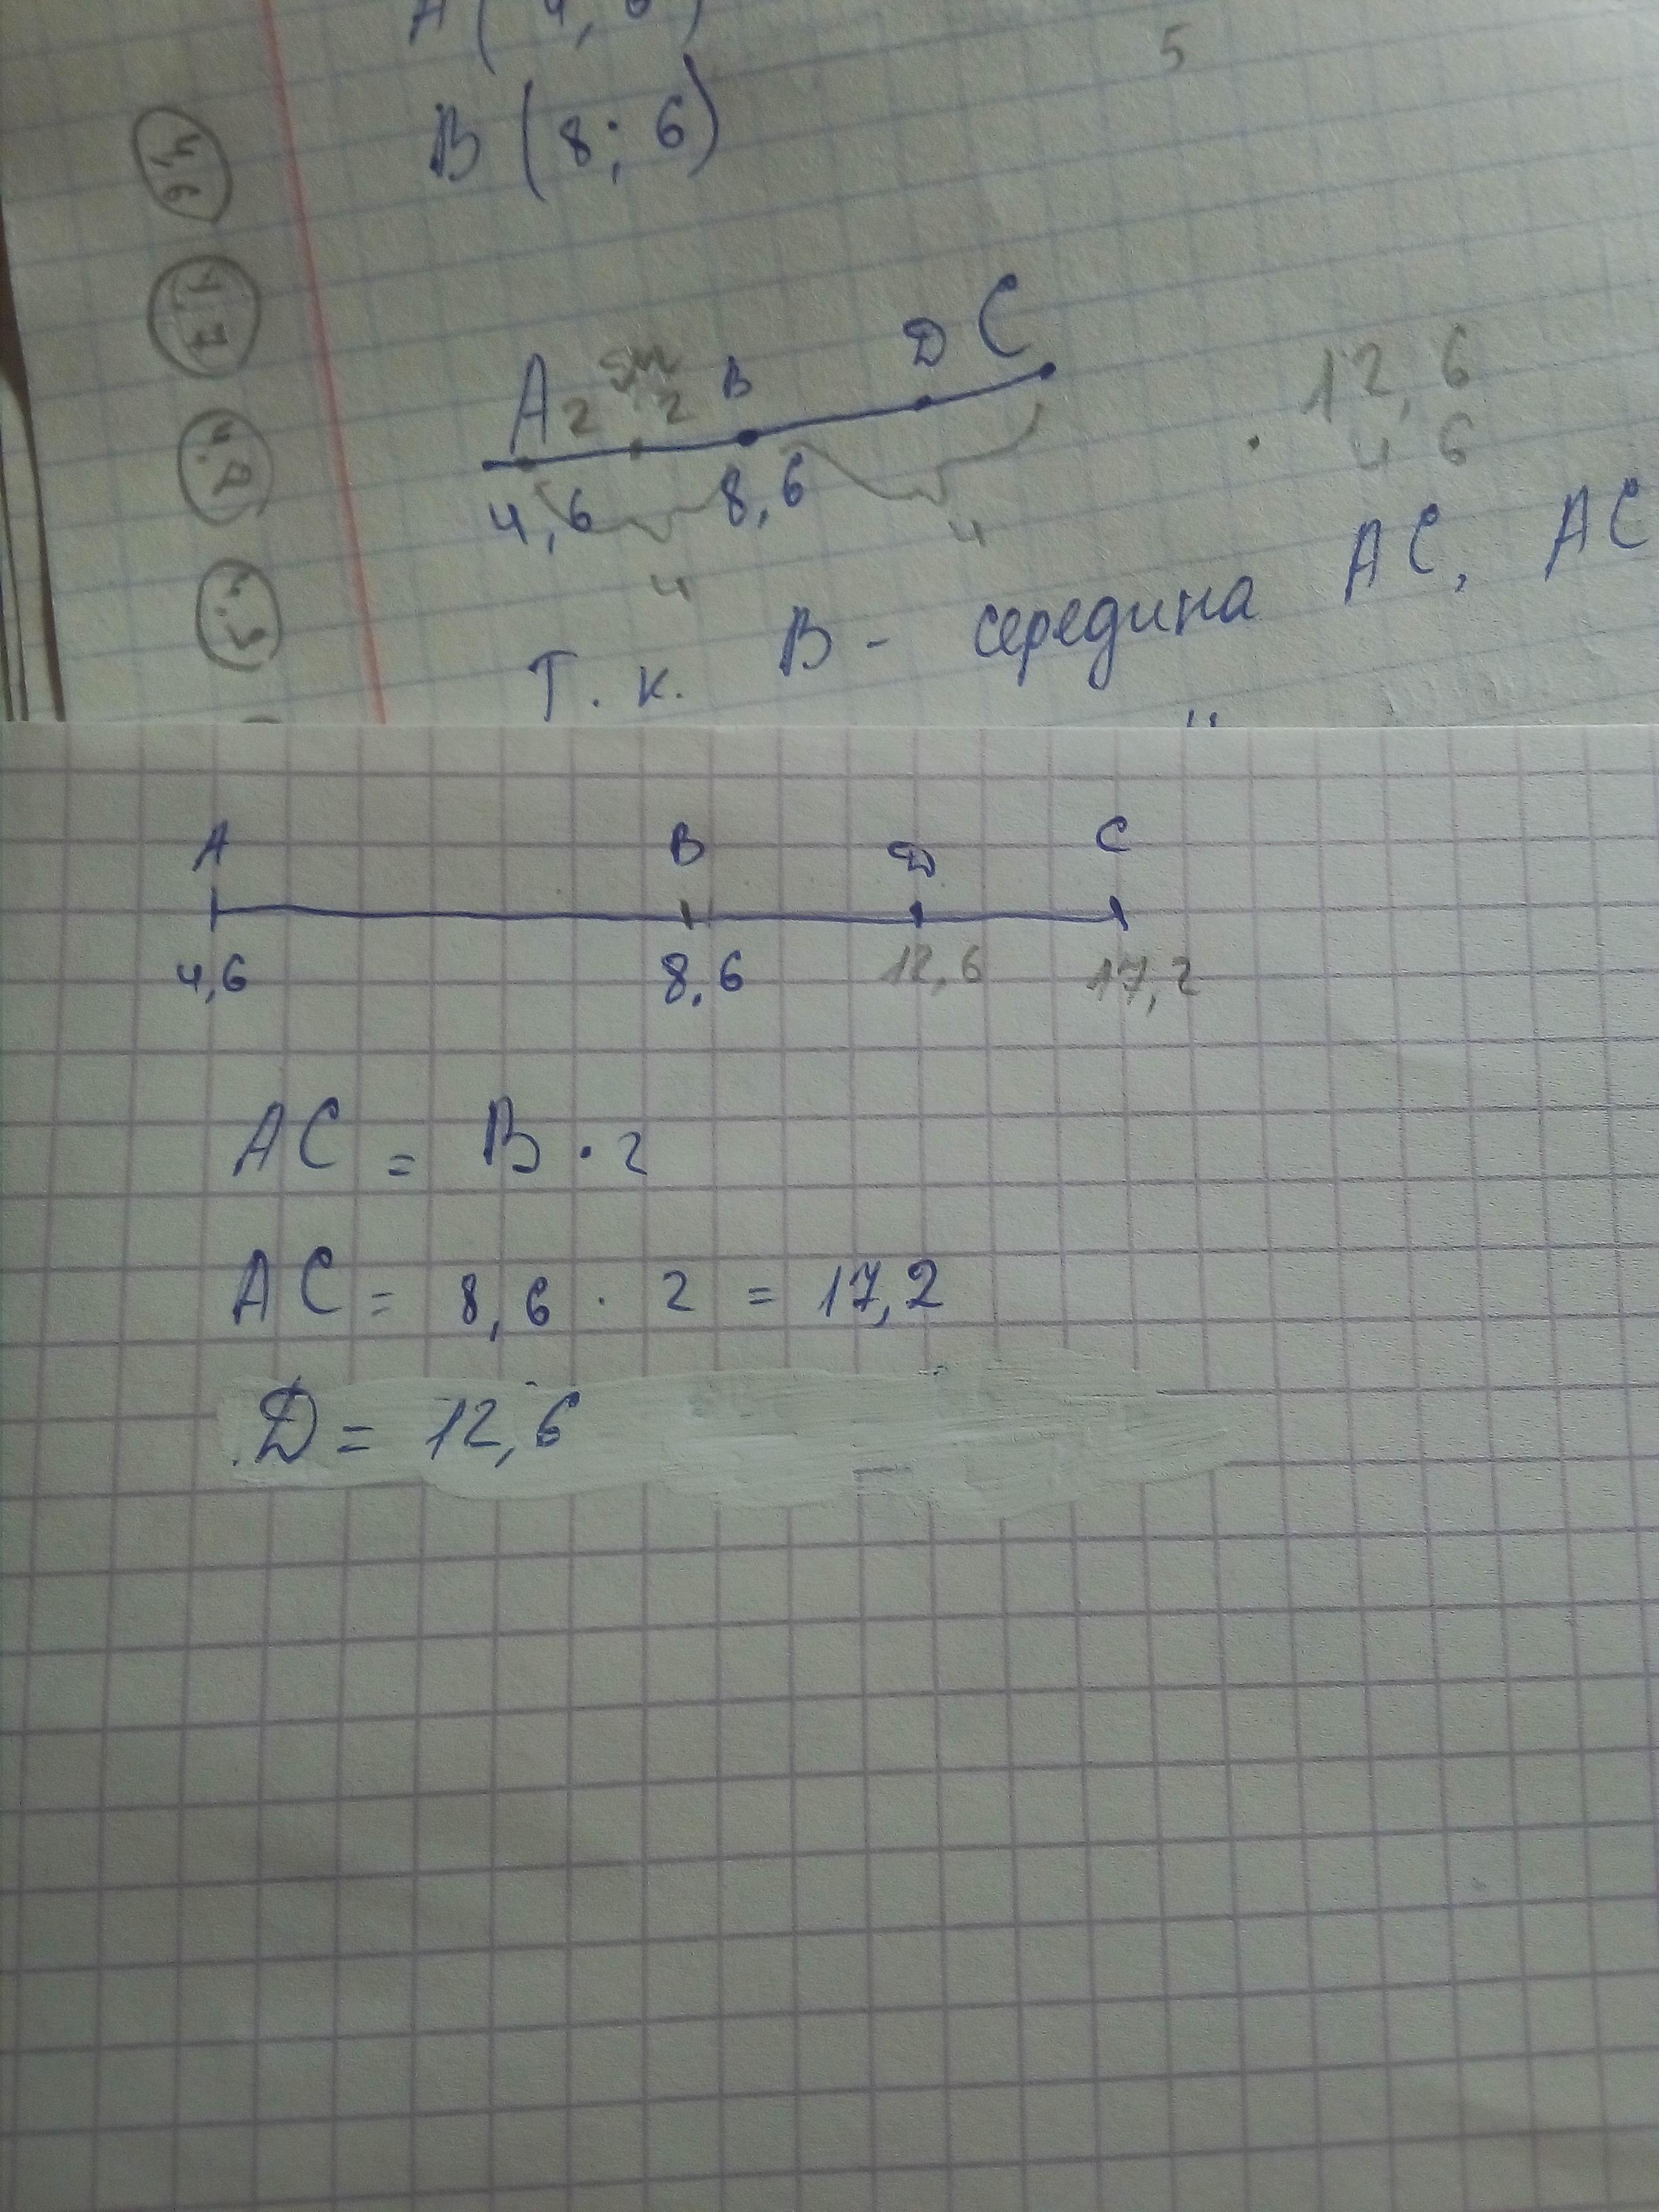 B (8; 6)
5
4,6
A 2 2 B D C
4,6 8,6
4 4
12,6
4 6
Т. к. B - середина AC, AC
A B D C
4,6 8,6 12,6 17,2
AC = B · 2
AC = 8,6 · 2 = 17,2
D = 12,6